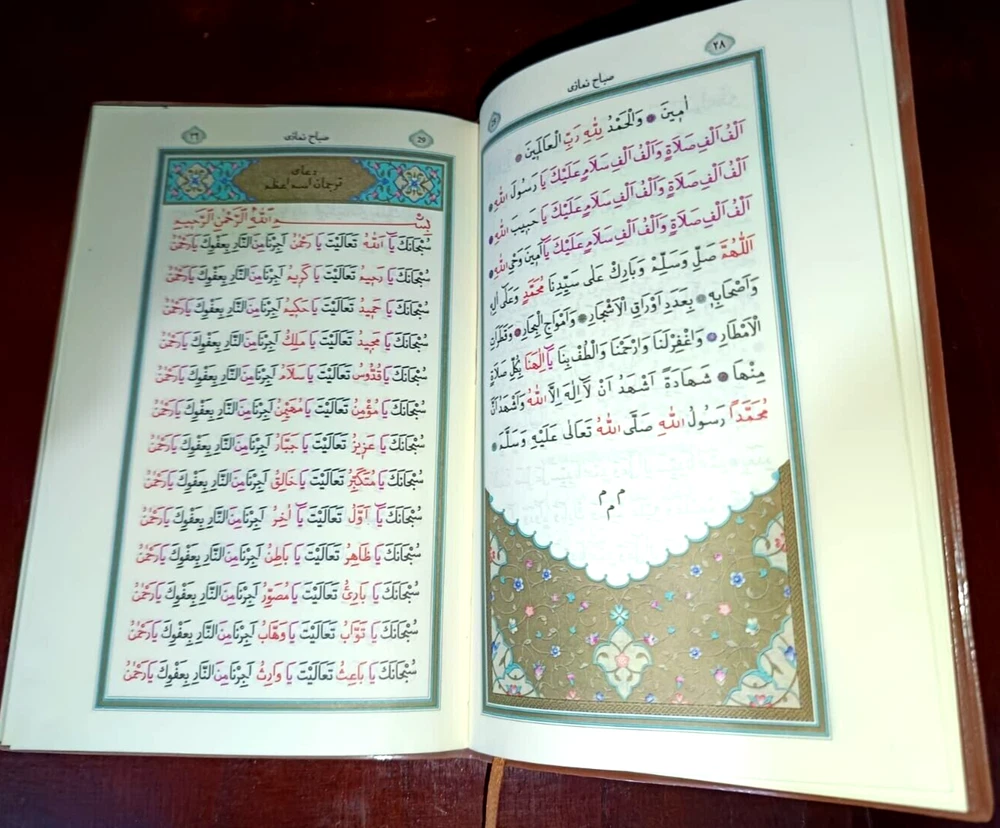 ٢٨
صباح نمازى
اٰمِينَ * وَالْحَمْدُ لِلّٰهِ رَبِّ الْعَالَمِينَ *
اَلْفُ اَلْفِ صَلَاةٍ وَاَلْفُ اَلْفِ سَلَامٍ عَلَيْكَ يَا رَسُولَ اللهِ *
اَلْفُ اَلْفِ صَلَاةٍ وَاَلْفُ اَلْفِ سَلَامٍ عَلَيْكَ يَا حَبِيبَ اللهِ *
اَلْفُ اَلْفِ صَلَاةٍ وَاَلْفُ اَلْفِ سَلَامٍ عَلَيْكَ يَا اَمِينَ وَحْىِ اللهِ *
اَللّٰهُمَّ صَلِّ وَسَلِّمْ وَبَارِكْ عَلٰى سَيِّدِنَا مُحَمَّدٍ وَعَلٰى اٰلِهِ
وَاَصْحَابِهِ * بِعَدَدِ اَوْرَاقِ الْاَشْجَارِ * وَاَمْوَاجِ الْبِحَارِ * وَقَطَرَاتِ
الْاَمْطَارِ * وَاغْفِرْلَنَا وَارْحَمْنَا وَالْطُفْ بِنَا يَا اِلٰهَنَا بِكُلِّ صَلَاةٍ
مِنْهَا * شَهَادَةً اَشْهَدُ اَنْ لَا اِلٰهَ اِلَّا اللهُ وَاَشْهَدُ اَنَّ
مُحَمَّدًا رَسُولُ اللهِ صَلَّى اللهُ تَعَالٰى عَلَيْهِ وَسَلَّمَ *
م م
م
29
صباح نمازى
٢٩
دعاى
ترجمان اسم اعظم
بِسْمِ اللهِ الرَّحْمٰنِ الرَّحِيمِ
سُبْحَانَكَ يَا اَللهُ تَعَالَيْتَ يَا رَحْمٰنُ اَجِرْنَا مِنَ النَّارِ بِعَفْوِكَ يَا رَحْمٰنُ
سُبْحَانَكَ يَا رَحِيمُ تَعَالَيْتَ يَا كَرِيمُ اَجِرْنَا مِنَ النَّارِ بِعَفْوِكَ يَا رَحْمٰنُ
سُبْحَانَكَ يَا حَمِيدُ تَعَالَيْتَ يَا حَكِيمُ اَجِرْنَا مِنَ النَّارِ بِعَفْوِكَ يَا رَحْمٰنُ
سُبْحَانَكَ يَا مَجِيدُ تَعَالَيْتَ يَا مَلِكُ اَجِرْنَا مِنَ النَّارِ بِعَفْوِكَ يَا رَحْمٰنُ
سُبْحَانَكَ يَا قُدُّوسُ تَعَالَيْتَ يَا سَلَامُ اَجِرْنَا مِنَ النَّارِ بِعَفْوِكَ يَا رَحْمٰنُ
سُبْحَانَكَ يَا مُؤْمِنُ تَعَالَيْتَ يَا مُهَيْمِنُ اَجِرْنَا مِنَ النَّارِ بِعَفْوِكَ يَا رَحْمٰنُ
سُبْحَانَكَ يَا عَزِيزُ تَعَالَيْتَ يَا جَبَّارُ اَجِرْنَا مِنَ النَّارِ بِعَفْوِكَ يَا رَحْمٰنُ
سُبْحَانَكَ يَا مُتَكَبِّرُ تَعَالَيْتَ يَا خَالِقُ اَجِرْنَا مِنَ النَّارِ بِعَفْوِكَ يَا رَحْمٰنُ
سُبْحَانَكَ يَا اَوَّلُ تَعَالَيْتَ يَا اٰخِرُ اَجِرْنَا مِنَ النَّارِ بِعَفْوِكَ يَا رَحْمٰنُ
سُبْحَانَكَ يَا ظَاهِرُ تَعَالَيْتَ يَا بَاطِنُ اَجِرْنَا مِنَ النَّارِ بِعَفْوِكَ يَا رَحْمٰنُ
سُبْحَانَكَ يَا بَارِئُ تَعَالَيْتَ يَا مُصَوِّرُ اَجِرْنَا مِنَ النَّارِ بِعَفْوِكَ يَا رَحْمٰنُ
سُبْحَانَكَ يَا تَوَّابُ تَعَالَيْتَ يَا وَهَّابُ اَجِرْنَا مِنَ النَّارِ بِعَفْوِكَ يَا رَحْمٰنُ
سُبْحَانَكَ يَا بَاعِثُ تَعَالَيْتَ يَا وَارِثُ اَجِرْنَا مِنَ النَّارِ بِعَفْوِكَ يَا رَحْمٰنُ